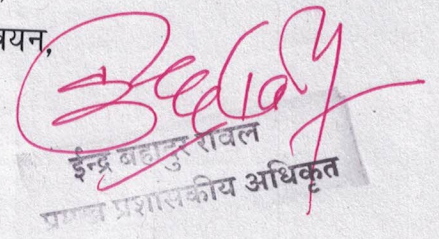 वयन,
ईन्द्र बहादुर रावल
प्रमुख प्रशासकीय अधिकृत